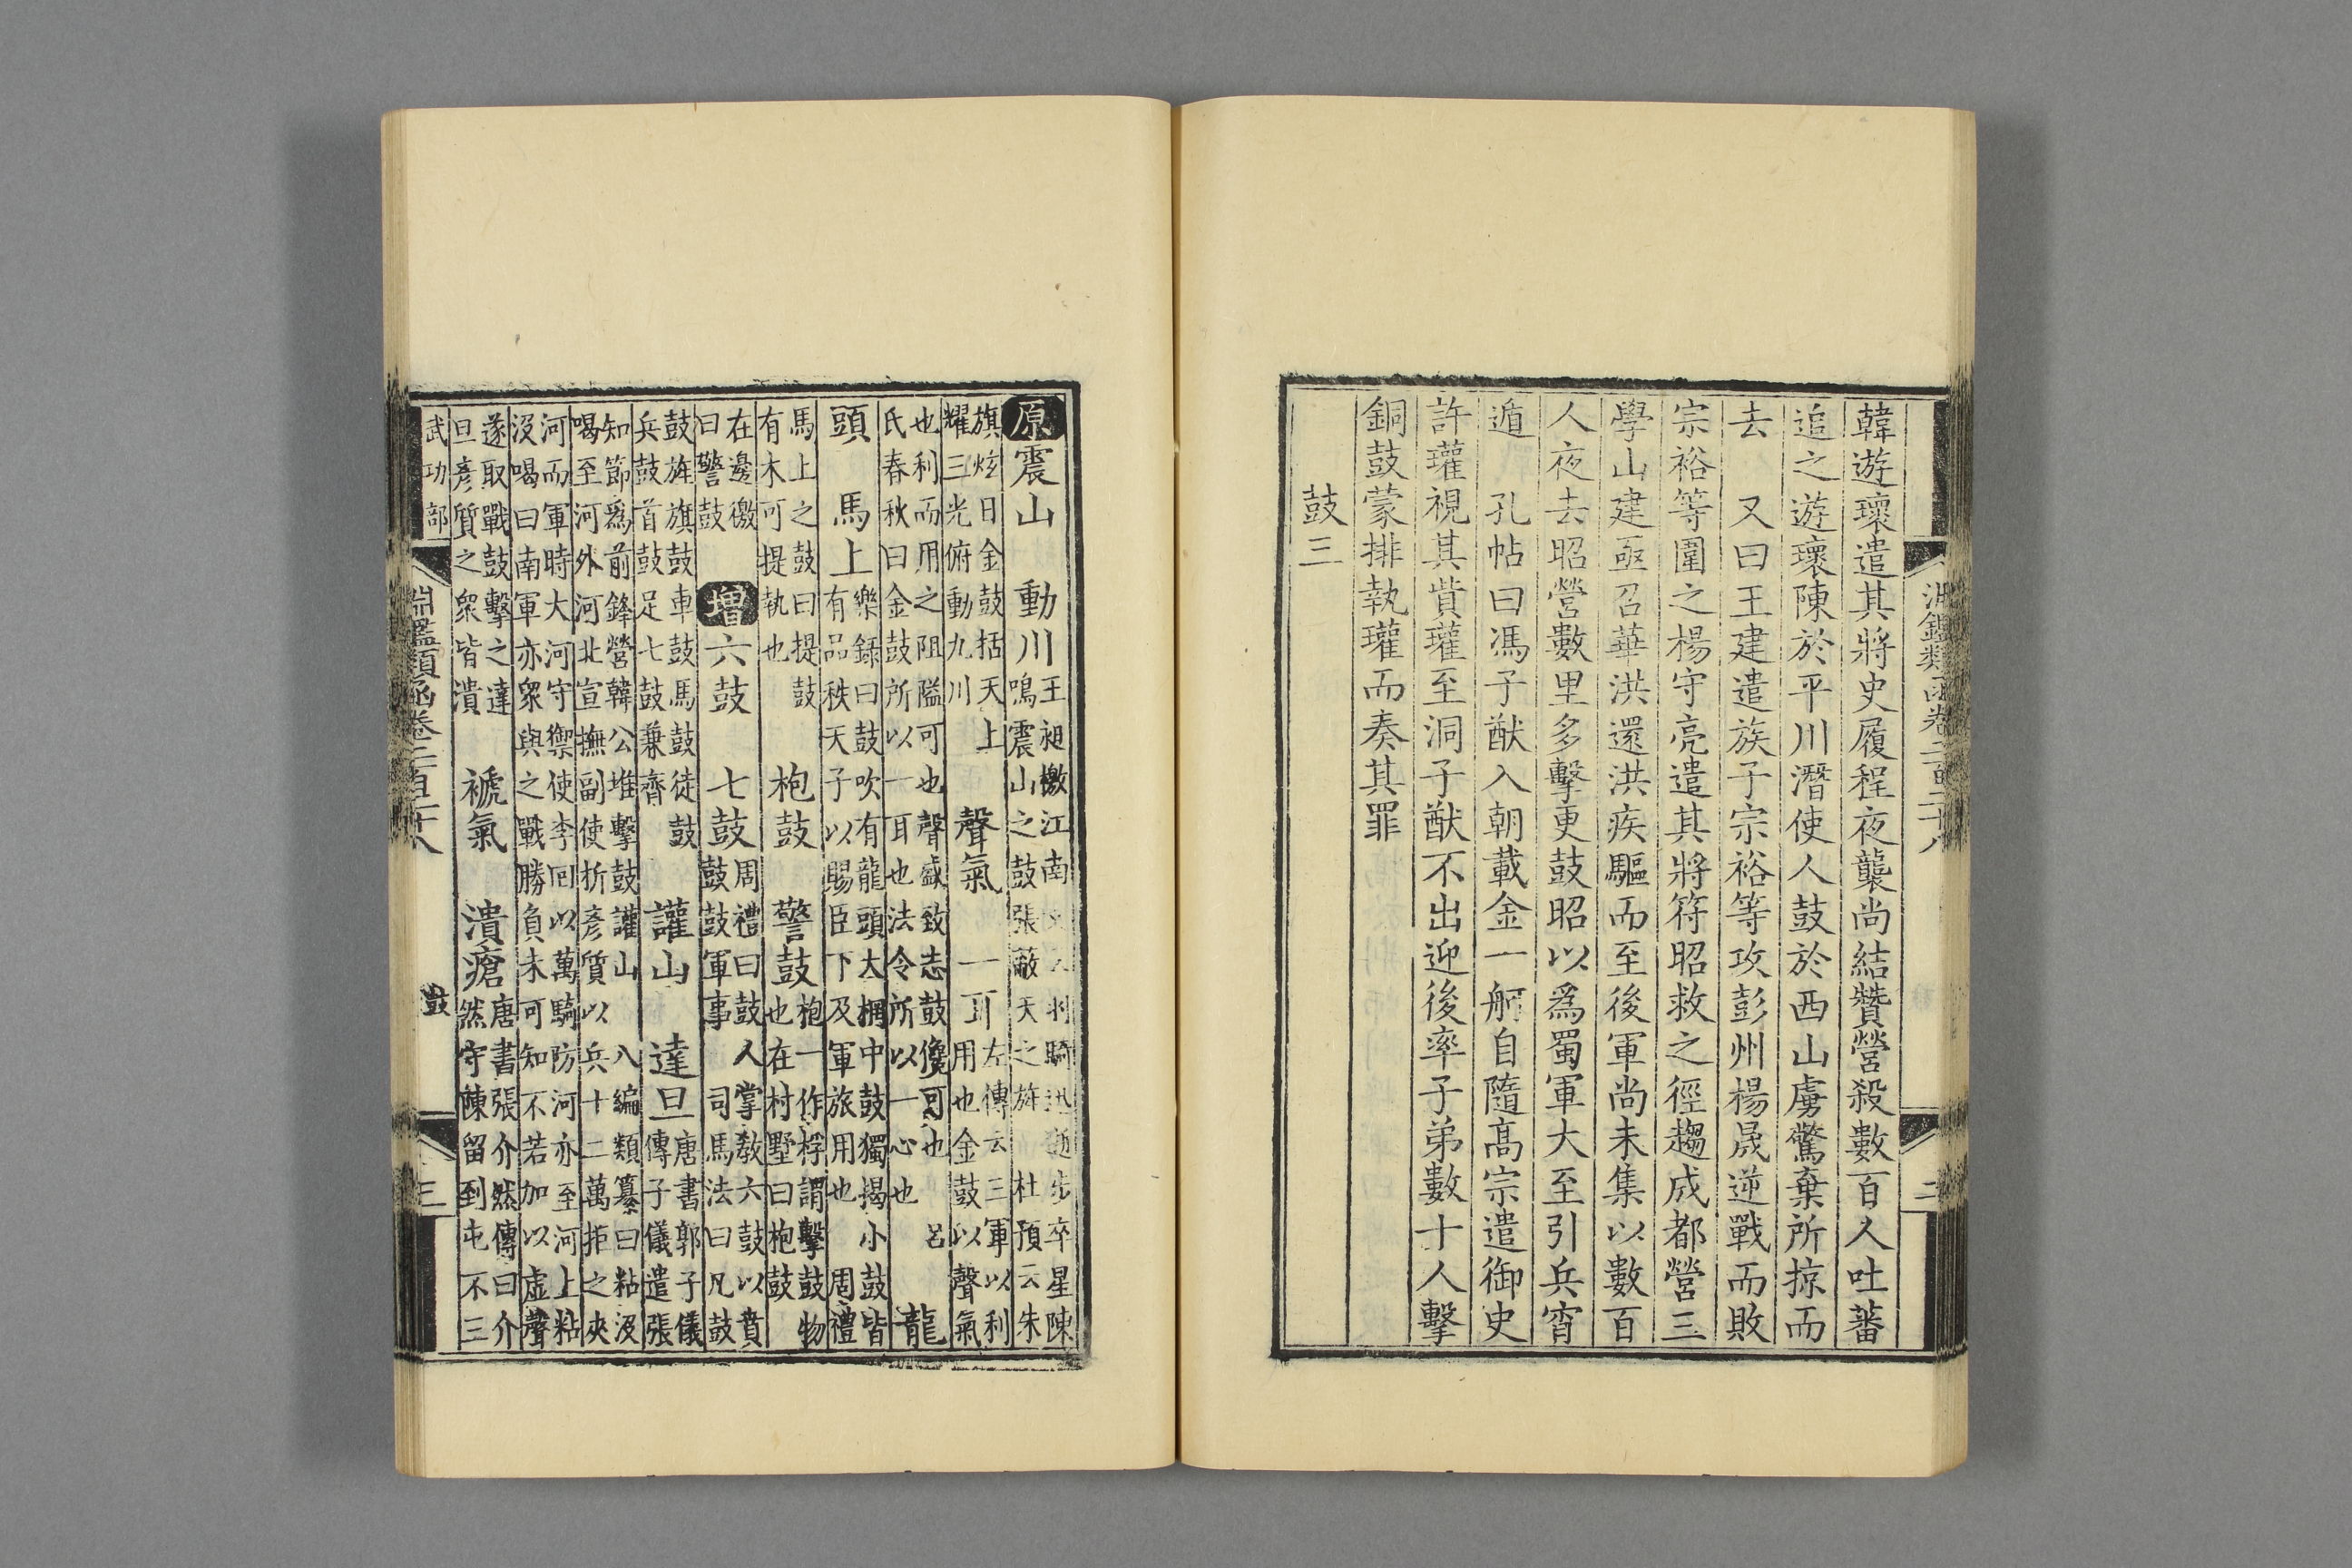 韓遊瓌遣其將史履程夜襲尚結贊營殺數百人吐蕃
追之遊瓌陳於平川潛使人鼓於西山虜驚棄所掠而
去　又曰王建遣族子宗裕等攻彭州楊晟逆戰而敗
宗裕等圍之楊守亮遣其將符昭救之徑趨成都營三
學山建亟召華洪還洪疾驅而至後軍尚未集以數百
人夜去昭營數里多擊更鼓昭以爲蜀軍大至引兵宵
遁　孔帖曰馮子猷入朝載金一舸自隨高宗遣御史
許瓘視其貲瓘至洞子猷不出迎後率子弟數十人擊
銅鼓蒙排執瓘而奏其罪
鼓三
原震山　動川王昶檄江南騎步卒星陳
鳴震山之鼓張蔽天之旌杜預云朱
旗炫日金鼓括天上
耀三光俯動九川　聲氣　一耳左傳云三軍以利
用也金鼓以聲氣
也利而用之阻隘可也聲盛致志鼓儳可也　呂
氏春秋曰金鼓所以一耳也法令所以一心也　龍
頭　馬上樂錄曰鼓吹有龍頭大棡中鼓獨揭小鼓皆
有品秩天子以賜臣下及軍旅用也　周禮
馬上之鼓曰提鼓
有木可提執也　枹鼓　警鼓枹一作桴謂擊鼓物
也在村墅曰枹鼓
在邊徼
曰警鼓　增六鼓　七鼓周禮曰鼓人掌教六鼓以賁
鼓鼓軍事　司馬法曰凡鼓
鼓旌旗鼓車鼓馬鼓徒鼓
兵鼓首鼓足七鼓兼齊　讙山　達旦唐書郭子儀
傳子儀遣張
知節爲前鋒營韓公堆擊鼓讙山　八編類纂曰粘沒
喝至河外河北宣撫副使折彥質以兵十二萬拒之夾
河而軍時大河守禦使李回以萬騎防河亦至河上粘
沒喝曰南軍亦衆與之戰勝負未可知不若加以虛聲
遂取戰鼓擊之達
旦彥質之衆皆潰　褫氣　潰瘡唐書張介然傳曰介
然守陳留到屯不三
武功部　淵鑑類函卷二百二十八　鼓　三